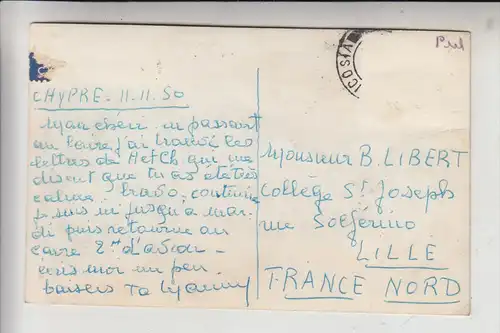 Prul
ICOSIA
CHYPRE - 11.11.50
Mon chéri en passant
au Caire j'ai trouvé les
lettres de H et Ch qui me
disent que tu as été très
calme bravo, continue
je suis ici jusqu'a mar
di puis retourne au
Caire
écris moi un peu
baisers ta
Monsieur B. LIBERT
Collège St Joseph
rue Solferino
LILLE
FRANCE NORD